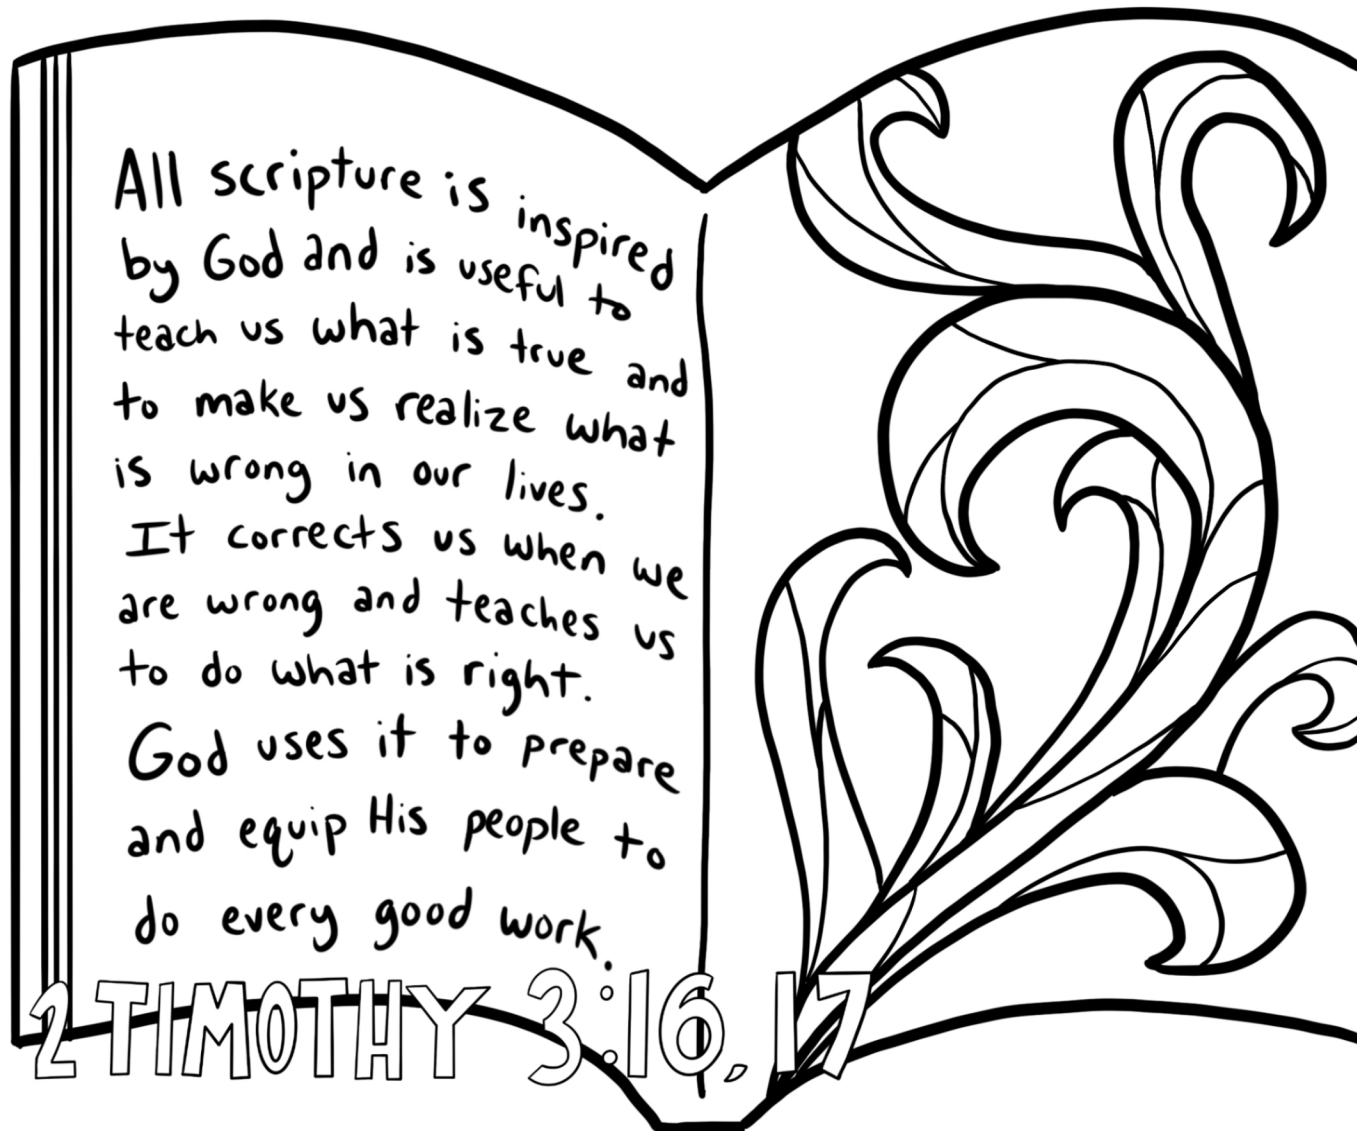 All scripture is inspired
by God and is useful to
teach us what is true and
to make us realize what
is wrong in our lives.
It corrects us when we
are wrong and teaches us
to do what is right.
God uses it to prepare
and equip His people to
do every good work.
2 TIMOTHY 3:16,17